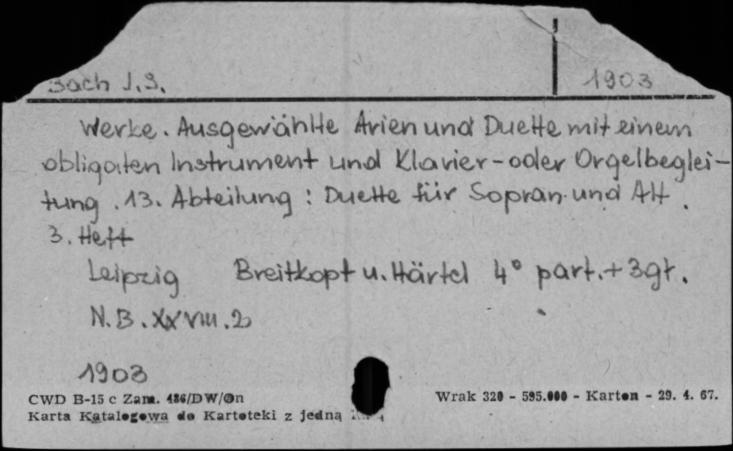 Bach J.S. 1903
Werke. Ausgewählte Arien und Duette mit einem
obligaten Instrument und Klavier- oder Orgelbeglei-
tung. 13. Abteilung: Duette für Sopran und Alt.
3. Heft
Leipzig Breitkopf u. Härtel 4° part. + 3 gł.
N.B. XXVIII. 2
1903
CWD B-15 c Zam. 486/DW/On Wrak 320 - 595.000 - Karton - 29. 4. 67.
Karta Katalogowa do Kartoteki z jedną